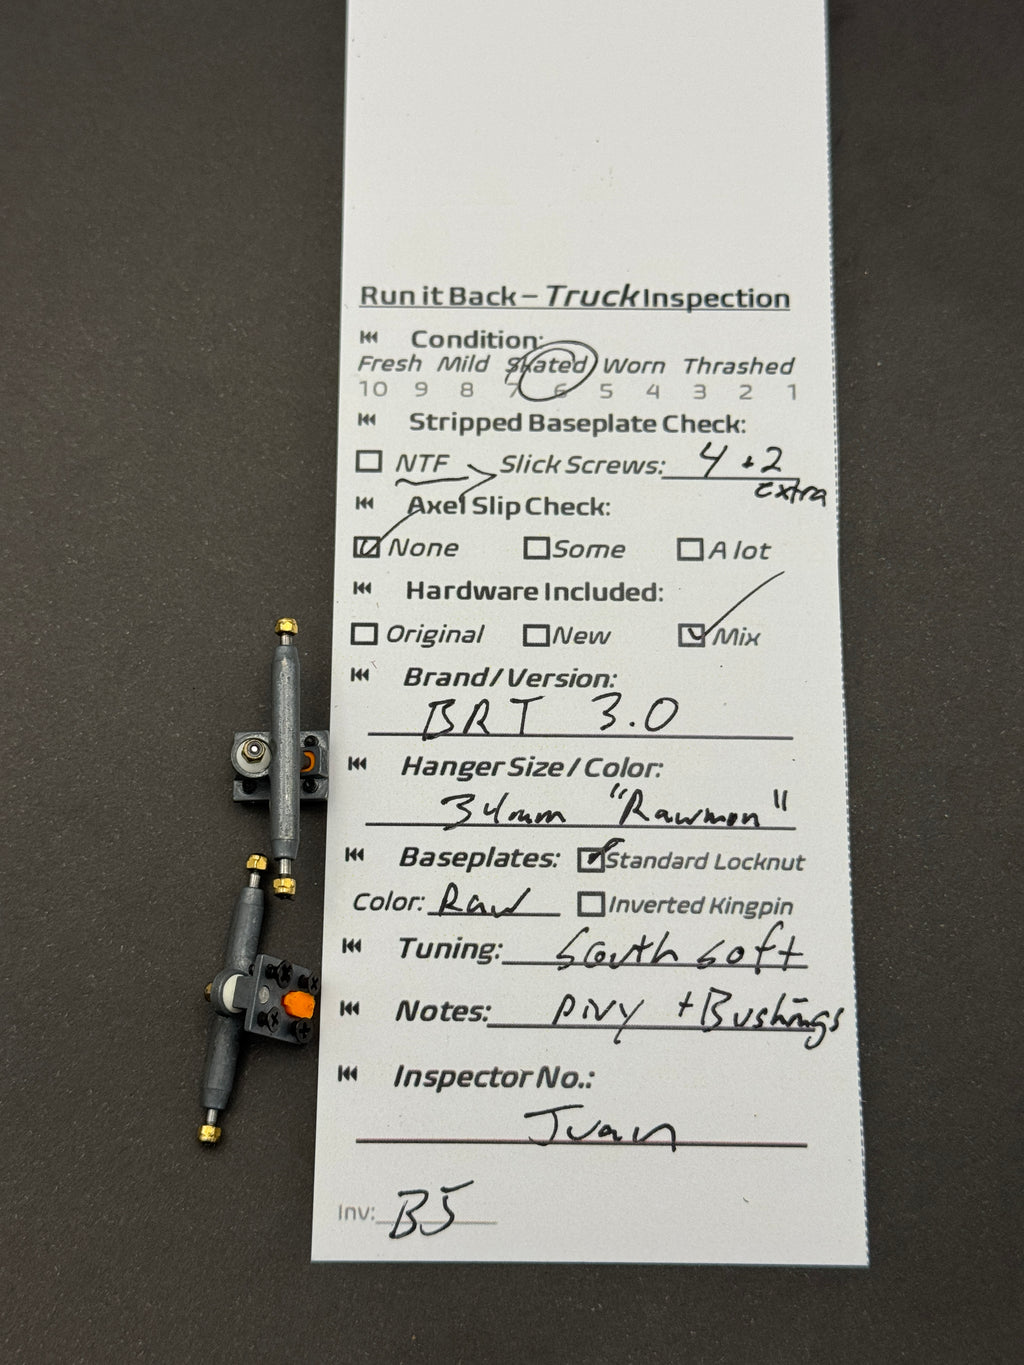 Run it Back – Truck Inspection
Condition:
Fresh Mild Skated Worn Thrashed
10 9 8 7 6 5 4 3 2 1
Stripped Baseplate Check:
NTF Slick Screws: 4 + 2
extra
Axel Slip Check:
None Some A lot
Hardware Included:
Original New Mix
Brand/Version:
BRT 3.0
Hanger Size / Color:
34mm "Rawmon"
Baseplates: Standard Locknut
Color: Raw Inverted Kingpin
Tuning: South soft
Notes: pivy + Bushings
Inspector No.:
Juan
Inv: B5